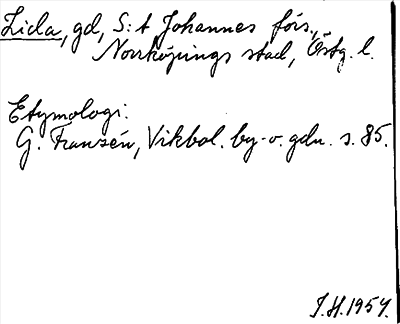 Lida, gd, S:t Johannes förs.,
Norrköpings stad, Östg. l.
Etymologi.
G. Franzén, Vikbol. by- o. gdn. s. 85.
I.H. 1954.